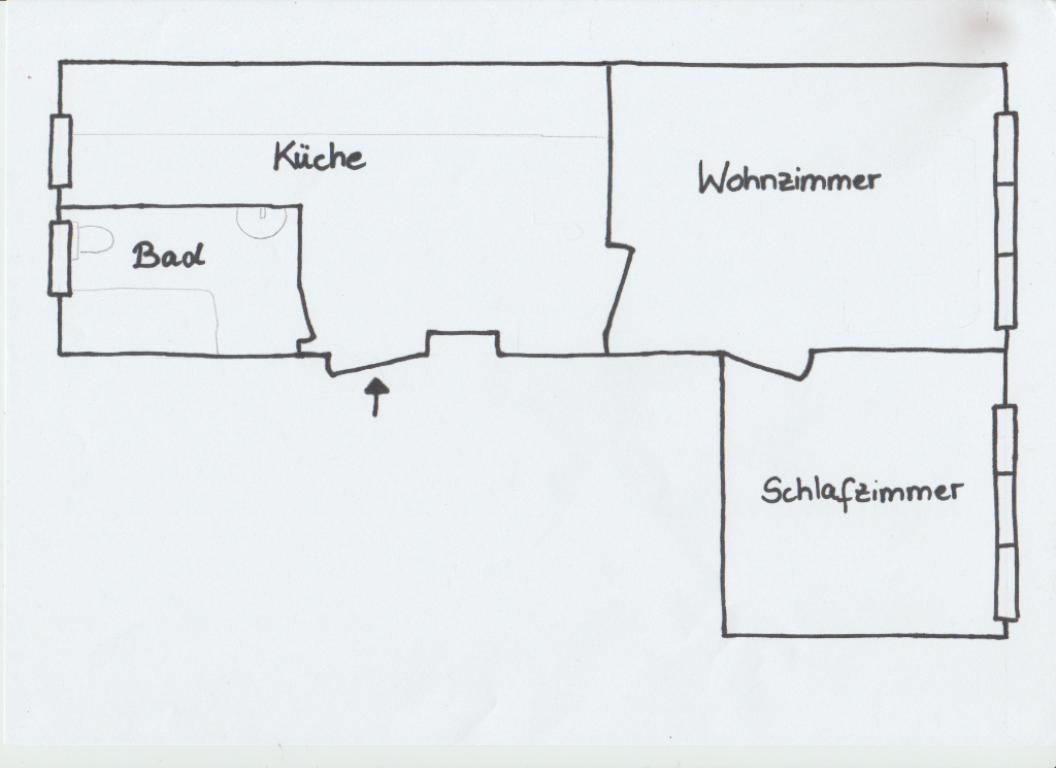 Küche
Wohnzimmer
Bad
Schlafzimmer